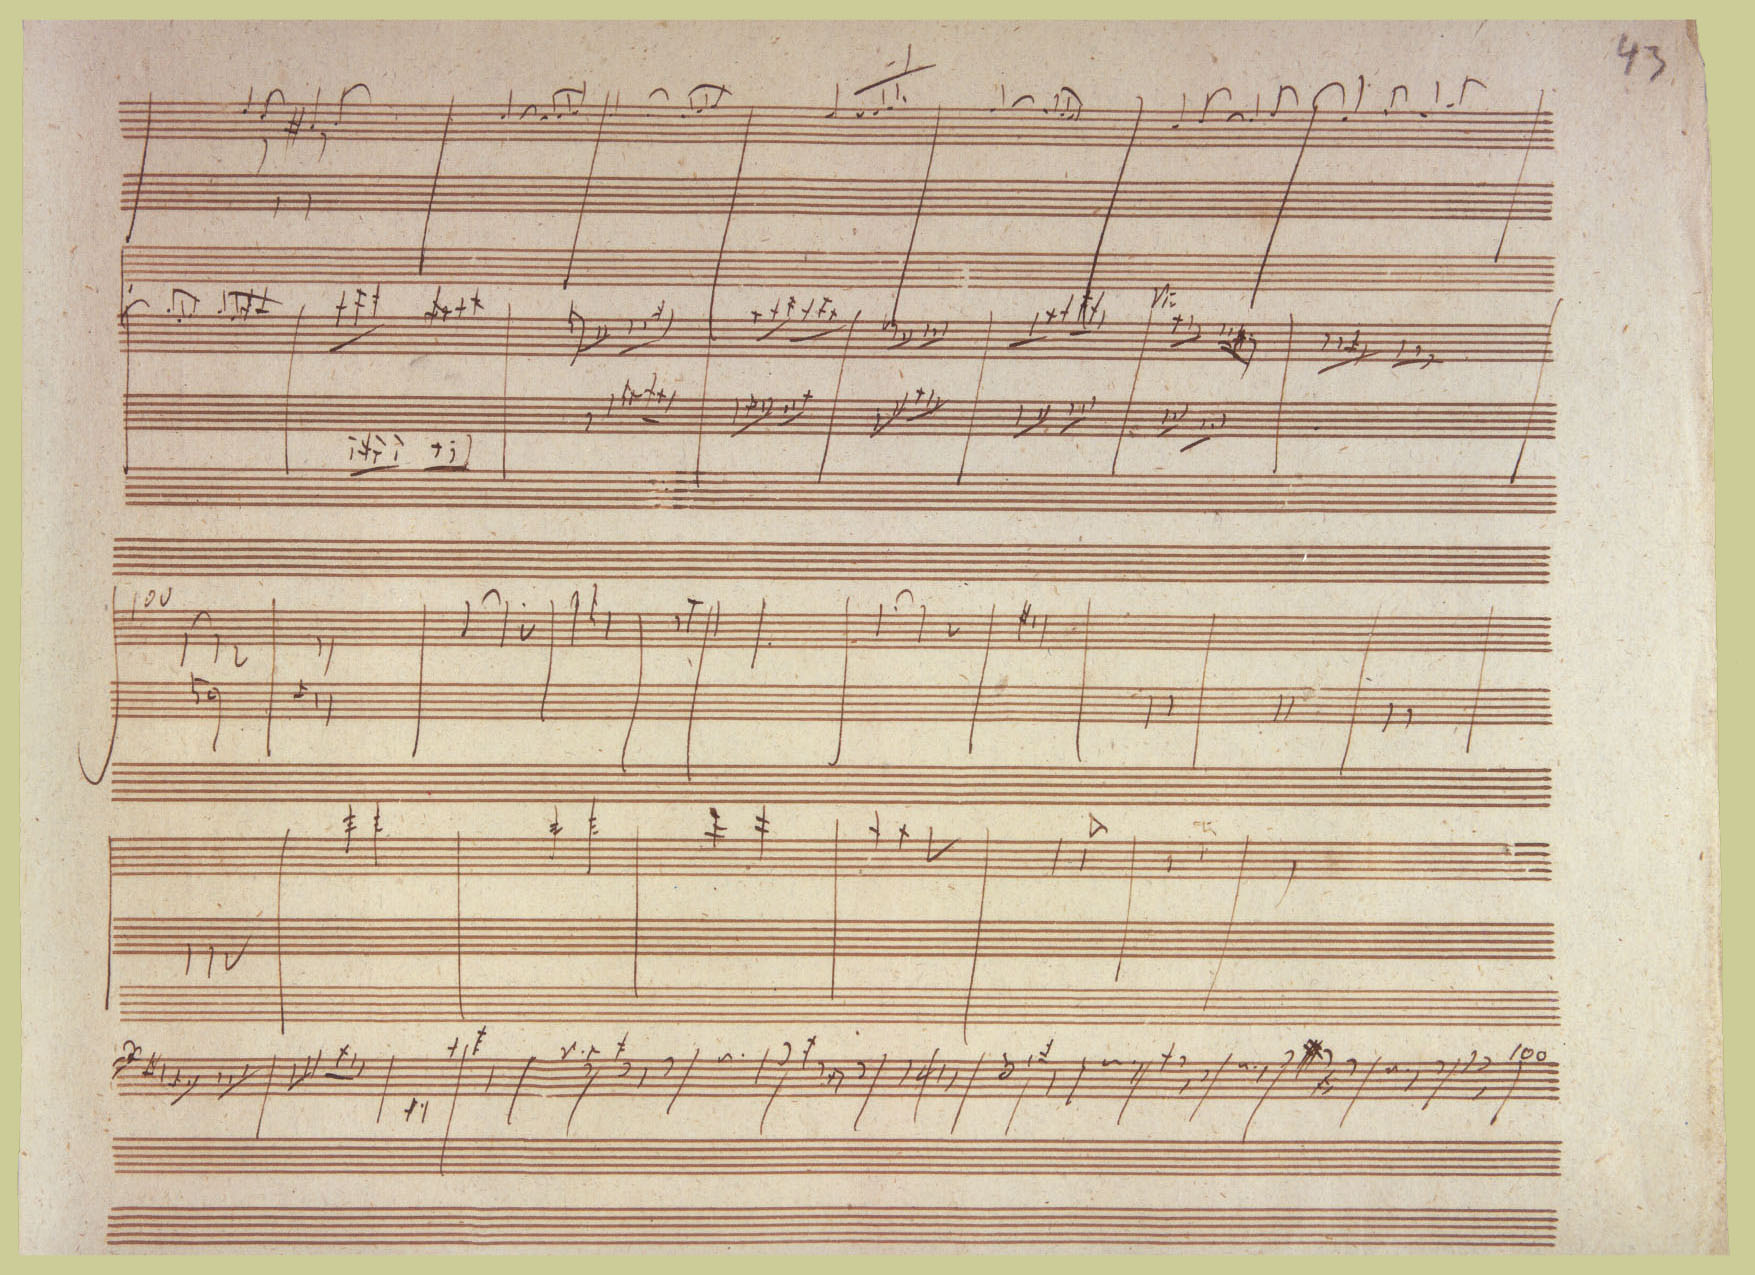 43
Vi-
100
100